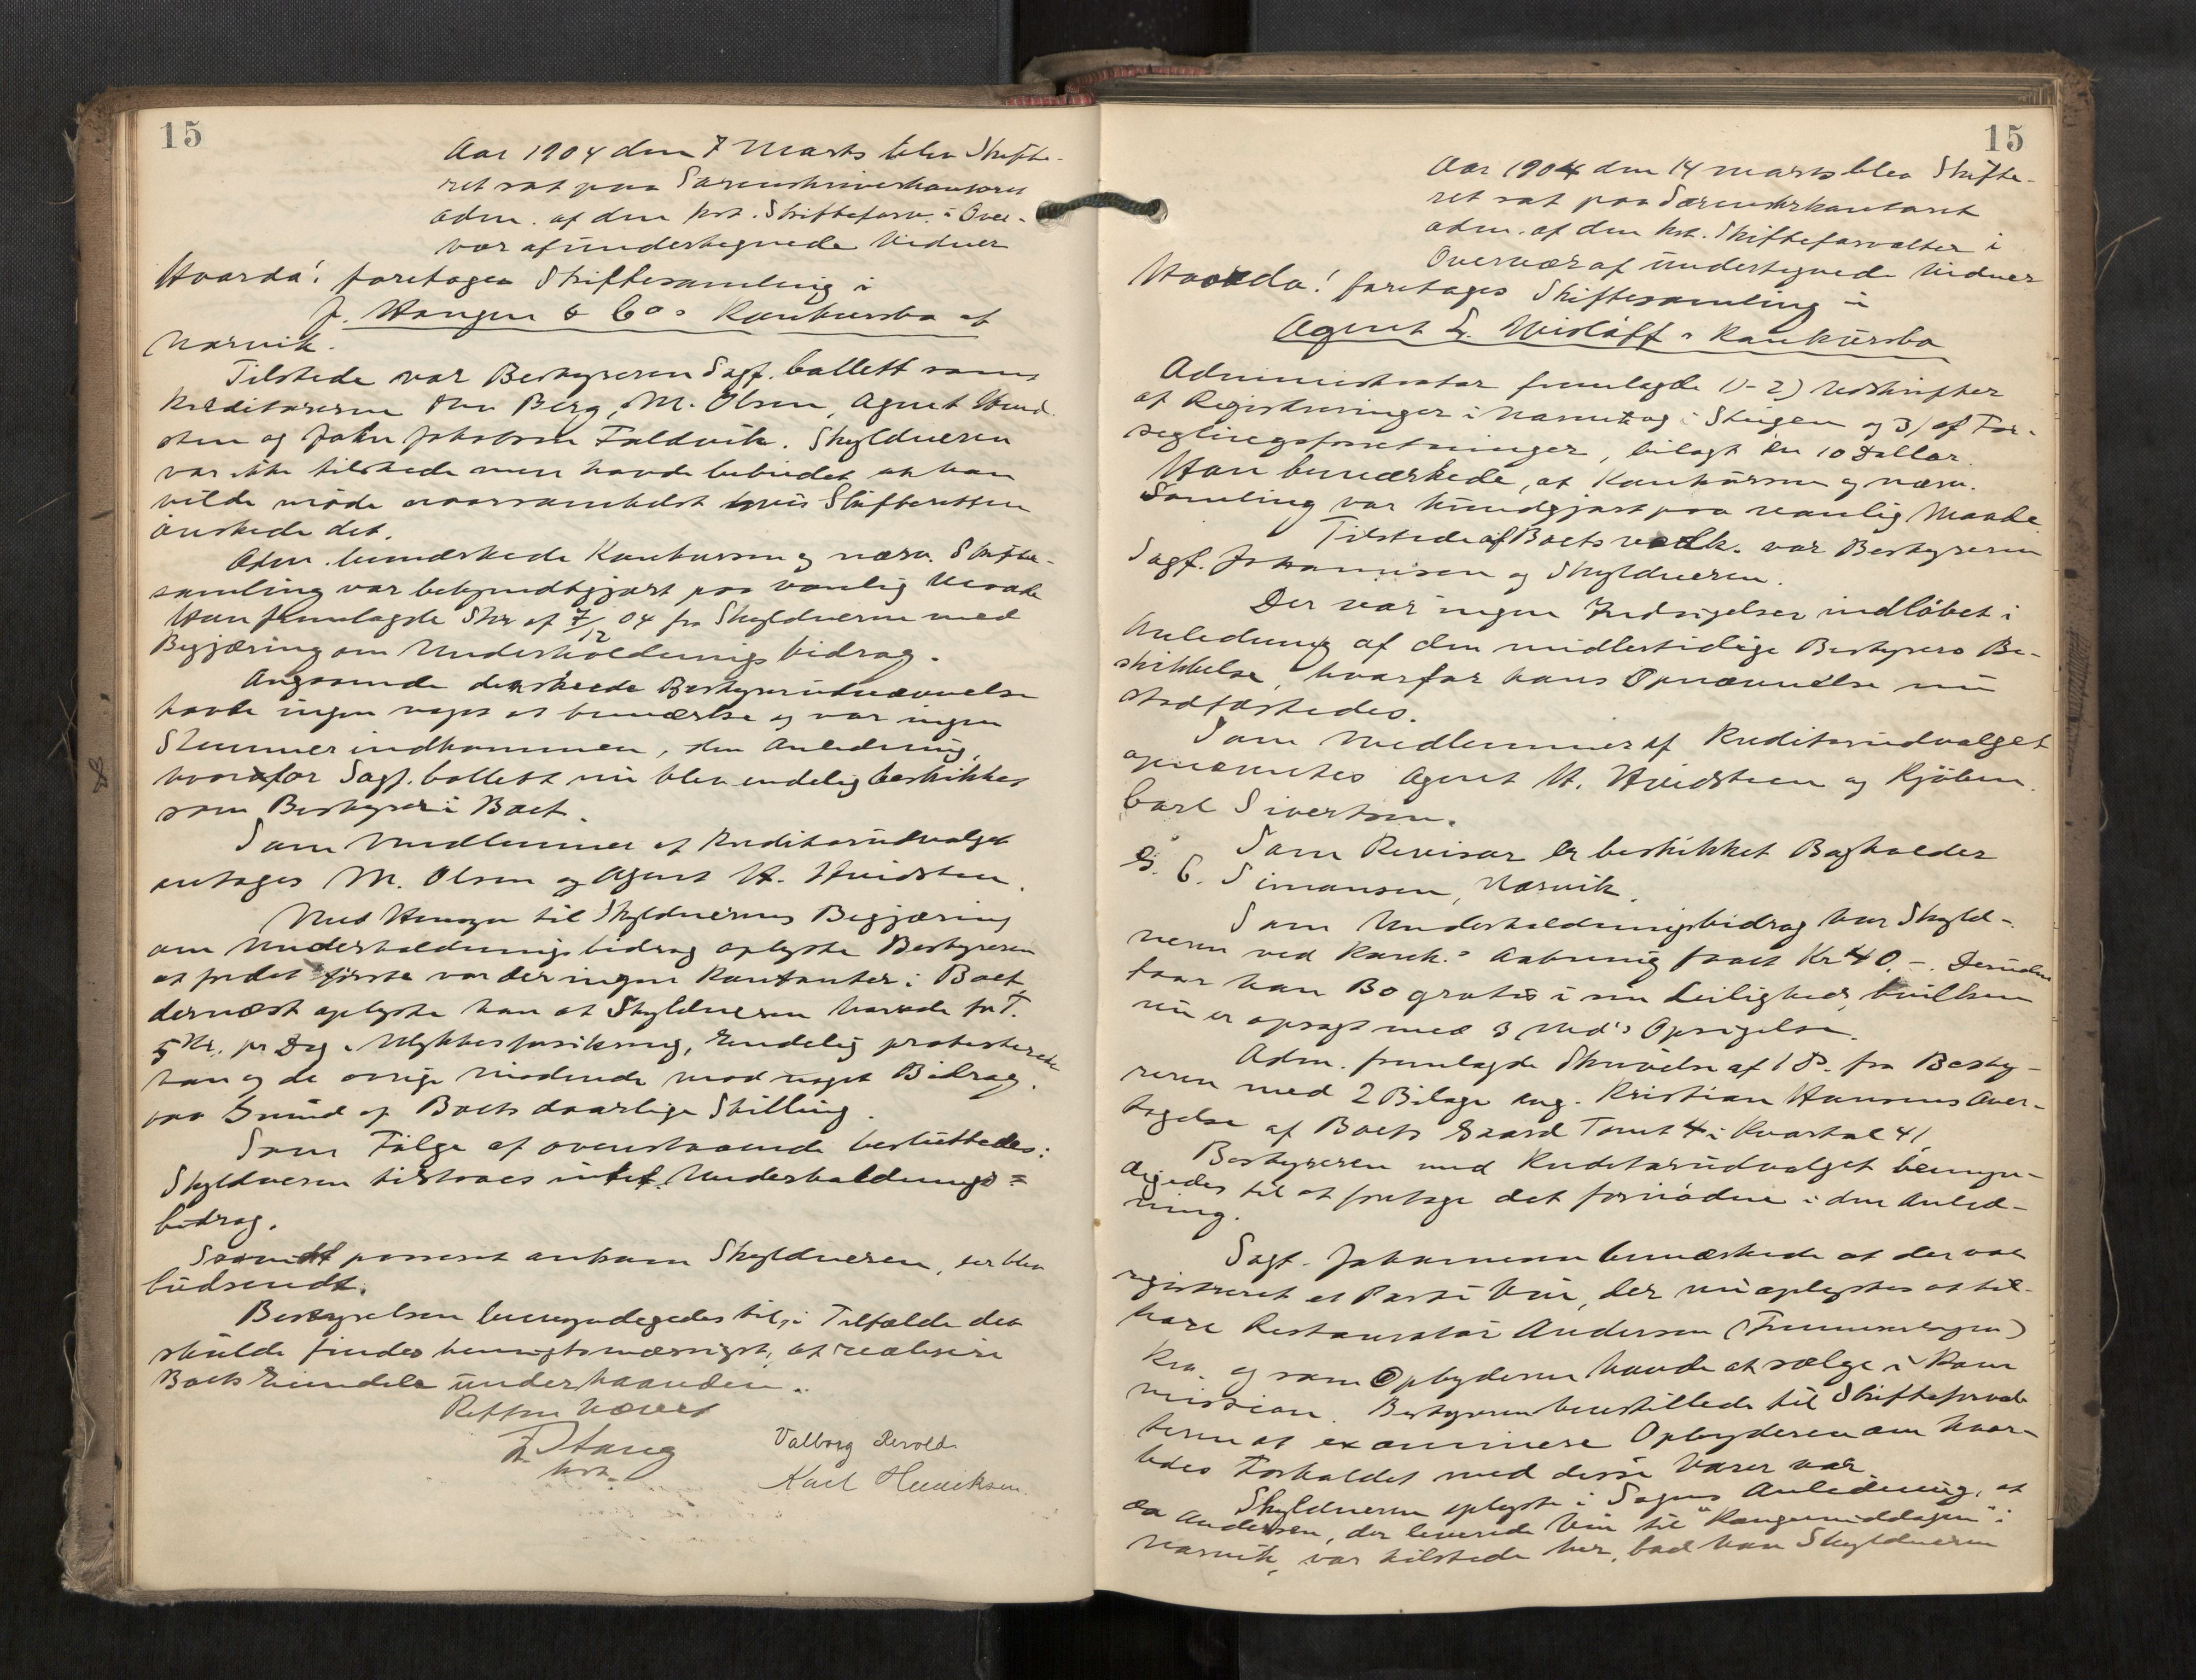 15
Aar 1904 den 7 Marts blev Skifte-
ret sat paa Sorenskriverkontoret
adm. af den kst. Skifteforv. i Over-
vær af undertegnede Vidner
Hvorda! foretoges Skiftesamling i
J. Haugen & Co's Konkursbo af
Narvik.
Tilstede var Bestyreren Sagf. Collett samt
Kreditorerne Berg, M. Olsen, Agent Hvid-
sten og John Jakobsen Foldvik. Skyldneren
var ikke tilstede men havde bebudet at han
vilde møde naarsomhelst hvis Skifteretten
ønskede det.
Adm. bemærkede Konkursen og nærv. Skifte-
samling var bekjendtgjort paa vanlig Maade
Han fremlagde Skr af 7/12 04 fra Skyldneren med
Begjæring om Underholdningsbidrag.
Angaaende den skeede Bestyrerudnævnelse
havde ingen noget at bemærke og var ingen
Stemmer indkommen, i den Anledning,
hvorfor Sagf. Collett nu blev endelig beskikket
som Bestyrer i Boet.
Som Medlemmer af Kreditorudvalget
antages M. Olsen og Agent H. Hvidsten.
Med Hensyn til Skyldnerens Begjæring
om Underholdningsbidrag oplyste Bestyreren
at for det første var der ingen Kontanter i Boet,
dernæst oplyste han at Skyldneren havde for T.
5 Kr. pr Dag i Ulykkesforsikring, Endelig protesterede
han og de øvrige mødende mod noget Bidrag.
paa Grund af Boets daarlige Stilling.
Som Følge af ovenstaaende besluttedes:
Skyldneren tilstaaes intet Underholdnings=
bidrag.
Saavidt passeret ankom Skyldneren, der blev
budsendt.
Bestyrelsen bemyndigedes til, i Tilfælde det
skulde findes hensigtsmæssigst, at realisere
Boets Eiendele underhaanden.
Retten hævet
Stang
kst.
Valborg Rervold.
Karl Henriksen.
15
Aar 1904 den 14 marts blev Skifte-
ret sat paa Sorenskrkontoret
adm. af den kst. Skifteforvalter i
Overvær af undertegnede Vidner
Hvorda! foretoges Skiftesamling i
Agent L. Wisløff's Konkursbo
Administrator fremlagde 1)-2) Udskrifter
af Registreringer i Narvik og i Steigen og 3) af For-
seglingsforretninger, bilagt en 10 Dollar.
Han bemærkede, at Konkursen og nærv.
Samling var kundgjort paa vanlig Maade
Tilstede af Boets vedk. var Bestyreren
Sagf. Johannisen og Skyldneren.
Der var ingen Indsigelser indløbet i
Anledning af den midlertidige Bestyrers Be-
skikkelse, hvorfor hans Opnævnelse nu
stadfæstedes.
Som Medlemmer af Kreditorudvalget
opnævntes Agent H. Hvidsteen og Kjøbm.
Carl Sivertsen.
Som Revisor er beskikket Bogholder
S. C. Simonsen, Narvik.
Som Underholdningsbidrag har Skyld-
neren ved Konk.s Aabning faaet Kr 40.-. Desuden
faar han Bo gratis i sin Leilighed, hvilken
nu er opsagt med 3 Md's Opsigelse.
Adm. fremlagde Skrivelse af 18. fra Besty-
reren med 2 Bilage ang. Kristian Hansens Over-
tagelse af Boets Gaard Tomt 4 i Kvartal 41.
Bestyreren med Kreditorudvalget bemyn-
digedes til at foretage det fornødne i den Anled-
ning.
Sagf. Johannesen bemærkede at der var
registreret et Parti Vin, der nu oplystes at til-
høre Restauratør Andersen
Kra. og som Opbyderen havde at sælge i Kom
mission. Bestyreren henstillede til Skifteforval
teren at examinere Opbyderen om hvor-
ledes Forholdet med disse Varer var
Skyldneren oplyste i Sagens Anledning, at
da Andersen, der leverede Vin til "Kongemiddagen" i
Narvik, var tilstede her, bad han Skyldneren